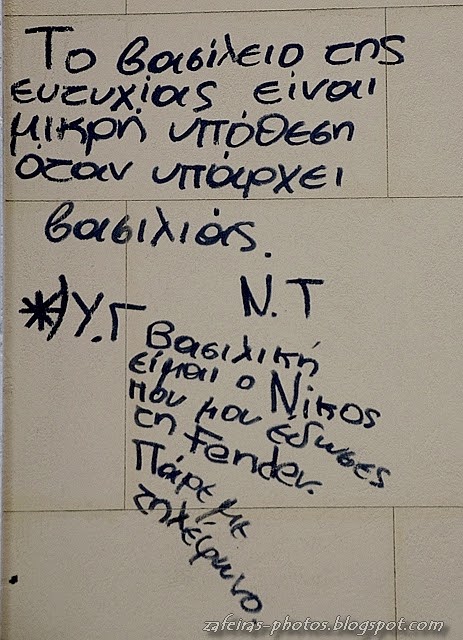 Το βασίλειο της
ευτυχίας είναι
μικρή υπόθεση
όταν υπάρχει
βασιλιάς.
Ν.Τ
*)Υ.Γ Βασιλική
είμαι ο Νίκος
που μου έδωσες
τη Fender.
Πάρε με
τηλέφωνο
zafeiras-photos.blogspot.com